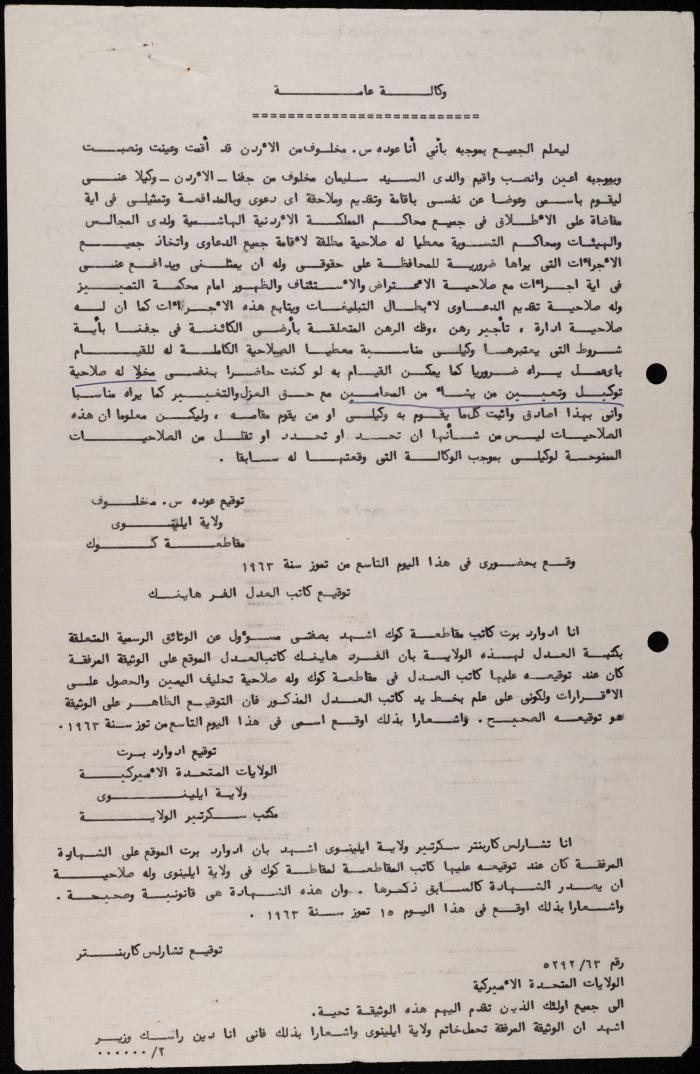 وكالة عامة
==========================
ليعلم الجميع بموجبه بأني أنا عوده س. مخلوف من الأردن قد أقمت وعينت ونصبت
وبموجبه اعين وانصب واقيم والدى السيد سليمان مخلوف من جفنا - الأردن - وكيلا عنى
ليقوم باسمى وعوضا عن نفسى باقامة وتقديم وملاحقة اى دعوى وبالمدافعة وتمثيلى فى اية
مقاضاة على الأطلاق فى جميع محاكم المملكة الأردنية الهاشمية ولدى المجالس
والهيئات ومحاكم التسوية معطيا له صلاحية مطلقة لأقامة جميع الدعاوى واتخاذ جميع
الأجراءات التى يراها ضرورية للمحافظة على حقوقى وله ان يمثلنى ويدافع عنى
فى اية اجراءات مع صلاحية الأعتراض والأستئناف والظهور امام محكمة التمييز
وله صلاحية تقديم الدعاوى لأبطال التبليغات ويتابع هذه الأجراءات كما ان له
صلاحية ادارة ، تأجير رهن ،وفك الرهن المتعلقة بأرضى الكائنة فى جفنا بأية
شروط التى يعتبرها وكيلى مناسبة معطيا الصلاحية الكاملة له للقيام
باىعمل يراه ضروريا كما يمكن القيام به لو كنت حاضرا بنفسى مخلا له صلاحية
توكيل وتعيين من يشاء من المحامين مع حق العزل والتغيير كما يراه مناسبا
وانى بهذا اصادق واثبت كل ما يقوم به وكيلى او من يقوم مقامه ، وليكن معلوما ان هذه
الصلاحيات ليس من شأنها ان تحد او تحدد او تقلل من الصلاحيات
الممنوحة لوكيلى بموجب الوكالة التى وقعتها له سابقا .
توقيع عوده س. مخلوف
ولاية ايلينوى
مقاطعة كوك
وقع بحضورى فى هذا اليوم التاسع من تموز سنة ١٩٦٣
توقيع كاتب العدل الفر هاينك
انا ادوارد برت كاتب مقاطعة كوك اشهد بصفتى مسؤول عن الوثائق الرسمية المتعلقة
بكتبة العدل لهذه الولاية بان الفرد هاينك كاتبالعدل الموقع على الوثيقة المرفقة
كان عند توقيعه عليها كاتب العدل فى مقاطعة كوك وله صلاحية تحليف اليمين والحصول على
الأقرارات ولكونى على علم بخط يد كاتب العدل المذكور فان التوقيع الظاهر على الوثيقة
هو توقيعه الصحيح. واشعارا بذلك اوقع اسمى فى هذا اليوم التاسع من توز سنة ١٩٦٣.
توقيع ادوارد برت
الولايات المتحدة الأميركية
ولاية ايلينوى
مكتب سكرتير الولاية
انا تشارلس كاربنتر سكرتير ولاية ايلينوى اشهد بان ادوارد برت الموقع على الشهادة
المرفقة كان عند توقيعه عليها كاتب المقاطعة لمقاطعة كوك فى ولاية ايلينوى وله صلاحية
ان يصدر الشهادة كالسابق ذكرها . وان هذه الشهادة هى قانونية وصحيحة .
واشعارا بذلك اوقع فى هذا اليوم ١٥ تموز سنة ١٩٦٣ .
توقيع تشارلس كاربنتر
رقم ٥٢٩٢/٦٣
الولايات المتحدة الأميركية
الى جميع اولئك الذين تقدم اليهم هذه الوثيقة تحية.
اشهد ان الوثيقة المرفقة تحمل خاتم ولاية ايلينوى واشعارا بذلك فانى انا دين راسك وزير
٢/ ......